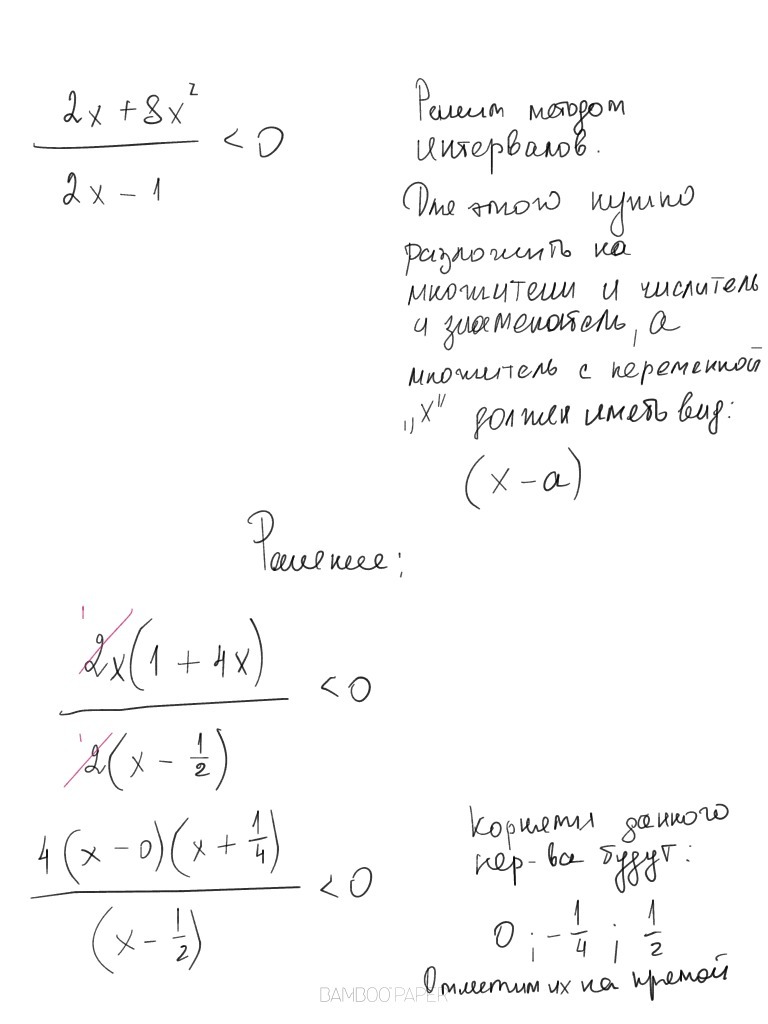 2x + 8x² / 2x - 1 < 0
Решим методом
интервалов.
Для этого нужно
разложить на
множители и числитель
и знаменатель, а
множитель с переменной
„x" должен иметь вид:
(x - a)
Решение:
2x(1 + 4x) / 2(x - 1/2) < 0
1
1
4(x - 0)(x + 1/4) / (x - 1/2) < 0
Корнями данного
нер-ва будут:
0 ; - 1/4 ; 1/2
Отметим их на прямой
BAMBOO PAPER